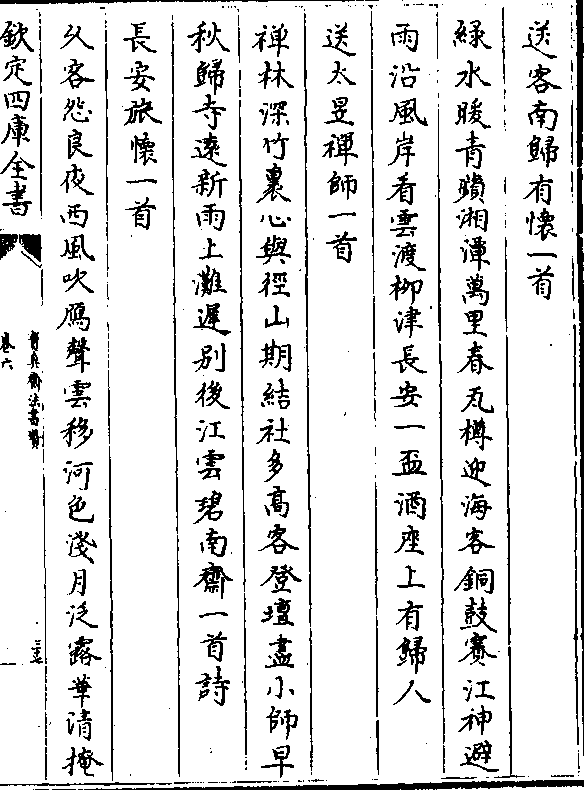 送客南歸有懷一首
緑水暖青蘋湘潭萬里春瓦樽迎海客銅鼓賽江神避
雨㳂風岸看雲渡栁津長安一盃酒座上有歸人
送太昱禪師一首
禅林深竹裏心與徑山期結社多髙客登壇盡小師早
秋歸寺逺新雨上灘遲别後江雲碧南齋一首詩
長安旅懷一首
乆客怨良夜西風吹鴈聲雲移河色淺月泛露華清掩
欽定四庫全書
寳真齋法書贊
卷六